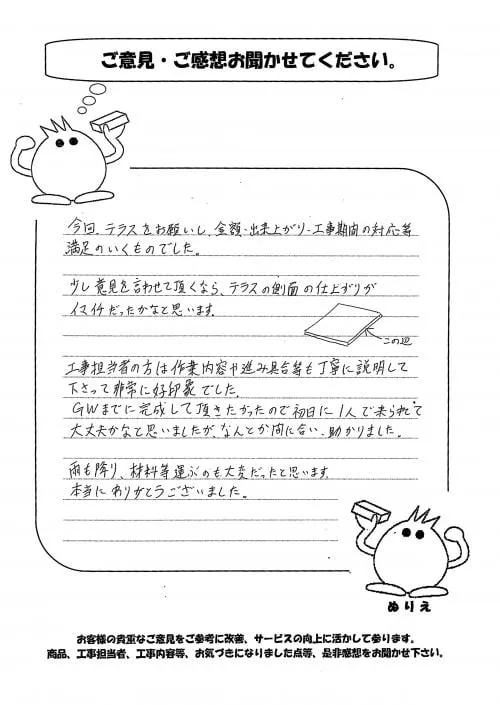 ご意見・ご感想お聞かせてください。
今回、テラスをお願いし、金額・出来上がり・工事期間の対応等
満足のいくものでした。
少し意見を言わせて頂くなら、テラスの側面の仕上がりが
イマイチだったかなと思います。
この辺
工事担当者の方は作業内容や進み具合等も丁寧に説明して
下さって非常に好印象でした。
GWまでに完成して頂きたかったので初日に1人で来られて
大丈夫かなと思いましたが、なんとか間に合い、助かりました。
雨も降り、材料等運ぶのも大変だったと思います。
本当にありがとうございました。
ぬりえ
お客様の貴重なご意見をご参考に改善、サービスの向上に活かして参ります。
商品、工事担当者、工事内容等、お気づきになりました点等、是非感想をお聞かせ下さい。